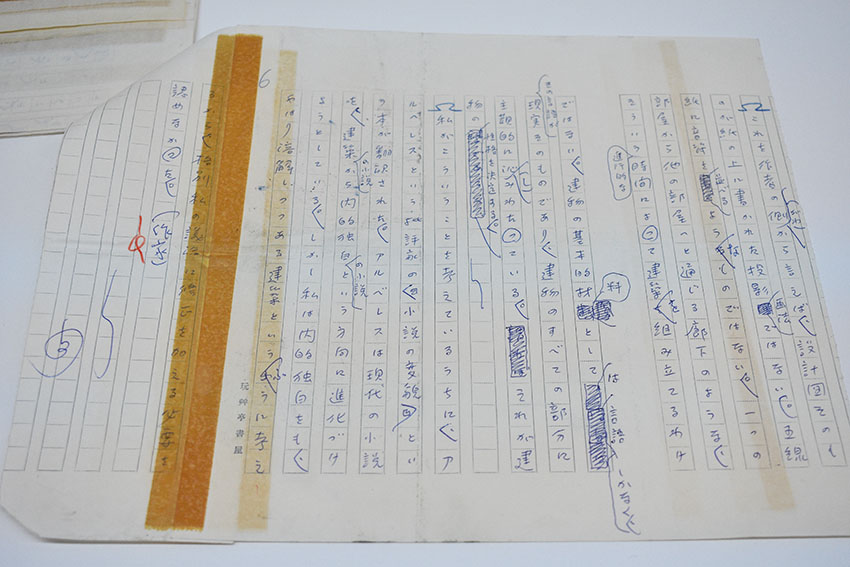 これを作者の側から言えば、設計図そのも
がわ
の上に書かれた投影画法ではない。直線
的に言語を通じるようなものではない。一つの
部屋から他の部屋へと通じる廊下のような、
進行的な
そういう時間によって建築を組み立てるわけ
ではない。建物の基本的材料としては言語しかなく、
現実そのものであり、建物のすべての部分に
主題的に沁みわたっている。それが建
物の性格を決定する。
私がこういうことを考えているうちに、ア
ルベレスという批評家の「小説の変貌」とい
う本が翻訳された。アルベレスは現代の小説
を、建築の小説から内的独白の小説という方向に進化づけ
ようとしている。しかし私は内的独白をも、
やはり溶解しつつある建築というふうに考え
格別私の説に訂正を加える必要を
認めなかった。(終)
6